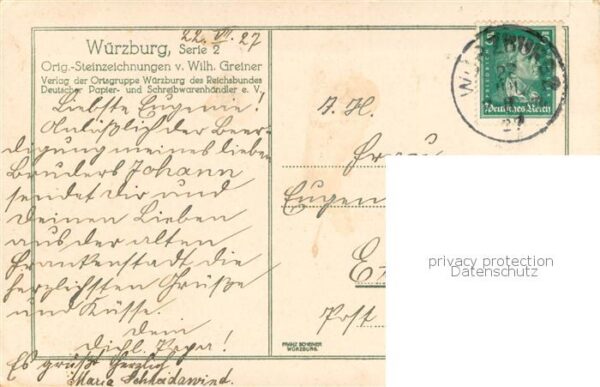 22. VII. 27
Würzburg, Serie 2
Orig.-Steinzeichnungen v. Wilh. Greiner
Verlag der Ortsgruppe Würzburg des Reichsbundes
Deutscher Papier- und Schreibwarenhändler e. V.
Liebste Eugenie!
Anläßlich der Beer-
digung meines lieben
Bruders Johann
sendet dir und
deinen Lieben
aus der alten
Frankenstadt die
herzlichsten Grüße
und Küsse.
Dein
Papa!
Es grüßt herzlich
Maria Schneidawind.
Deutsches Reich
WÜRZBURG
27
Frau
Eugen
Post
FRANZ SCHEINER
WÜRZBURG
privacy protection
Datenschutz